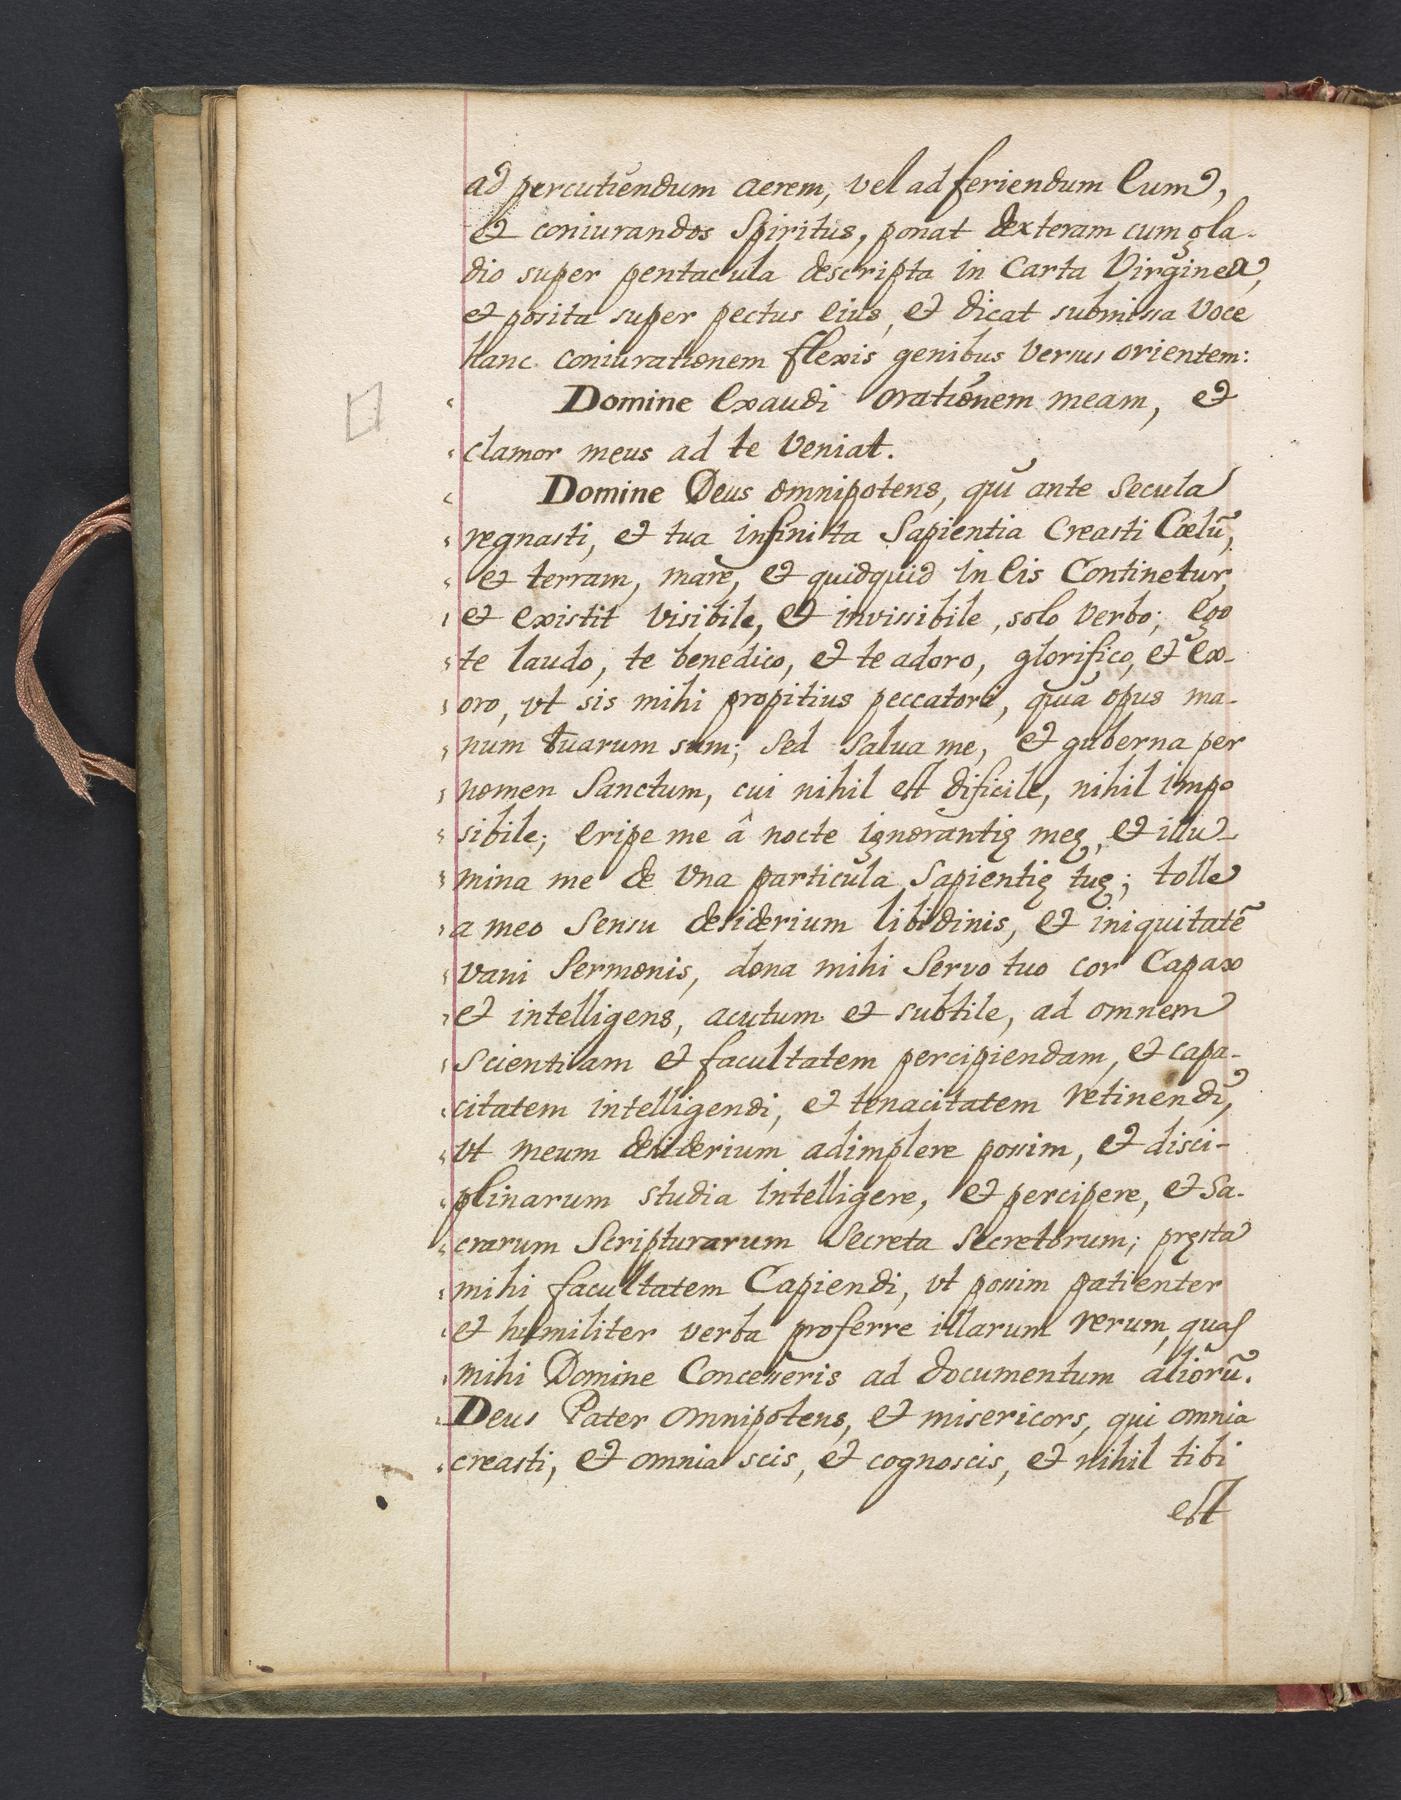 ad percutiendum aerem, vel ad feriendum Eum,
et coniurandos Spiritus, ponat dexteram cum gla-
dio super pentacula descripta in Carta Virginea,
et posita super pectus eius, et dicat submissa voce
hanc coniurationem flexis genibus versus orientem:
Domine Exaudi orationem meam, et
clamor meus ad te veniat.
Domine Deus omnipotens, qui ante Secula
regnasti, et tua infinita Sapientia Creasti Cœlũ,
et terram, mare, et quidquid in Eis Continetur,
et Existit visibile, et invissibile, solo verbo; Ego
te laudo, te benedico, et te adoro, glorifico, et Ex-
oro, vt sis mihi propitius peccatori, quia opus ma-
num tuarum sum; sed salua me, et guberna per
nomen Sanctum, cui nihil est dificile, nihil impo
sibile; Eripe me â nocte ignorantię meę, et illu-
mina me de Vna particula Sapientię tuę; tolle
a meo Sensu desiderium libidinis, et iniquitatẽ
vani Sermonis, dona mihi Servo tuo cor Capax
et intelligens, acutum et subtile, ad omnem
scientiam et facultatem percipiendam, et capa-
citatem intelligendi, et tenacitatem retinendi,
vt meum desiderium adimplere possim, et disci-
plinarum studia intelligere, et percipere, et Sa-
crarum Scripturarum Secreta Secretorum; pręsta
mihi facultatem Capiendi, vt possim patienter
et humiliter verba proferre illarum rerum, quas
mihi Domine Concesseris ad documentum aliorũ.
Deus Pater omnipotens, et misericors, qui omnia
creasti, et omnia scis, et cognoscis, et nihil tibi
est